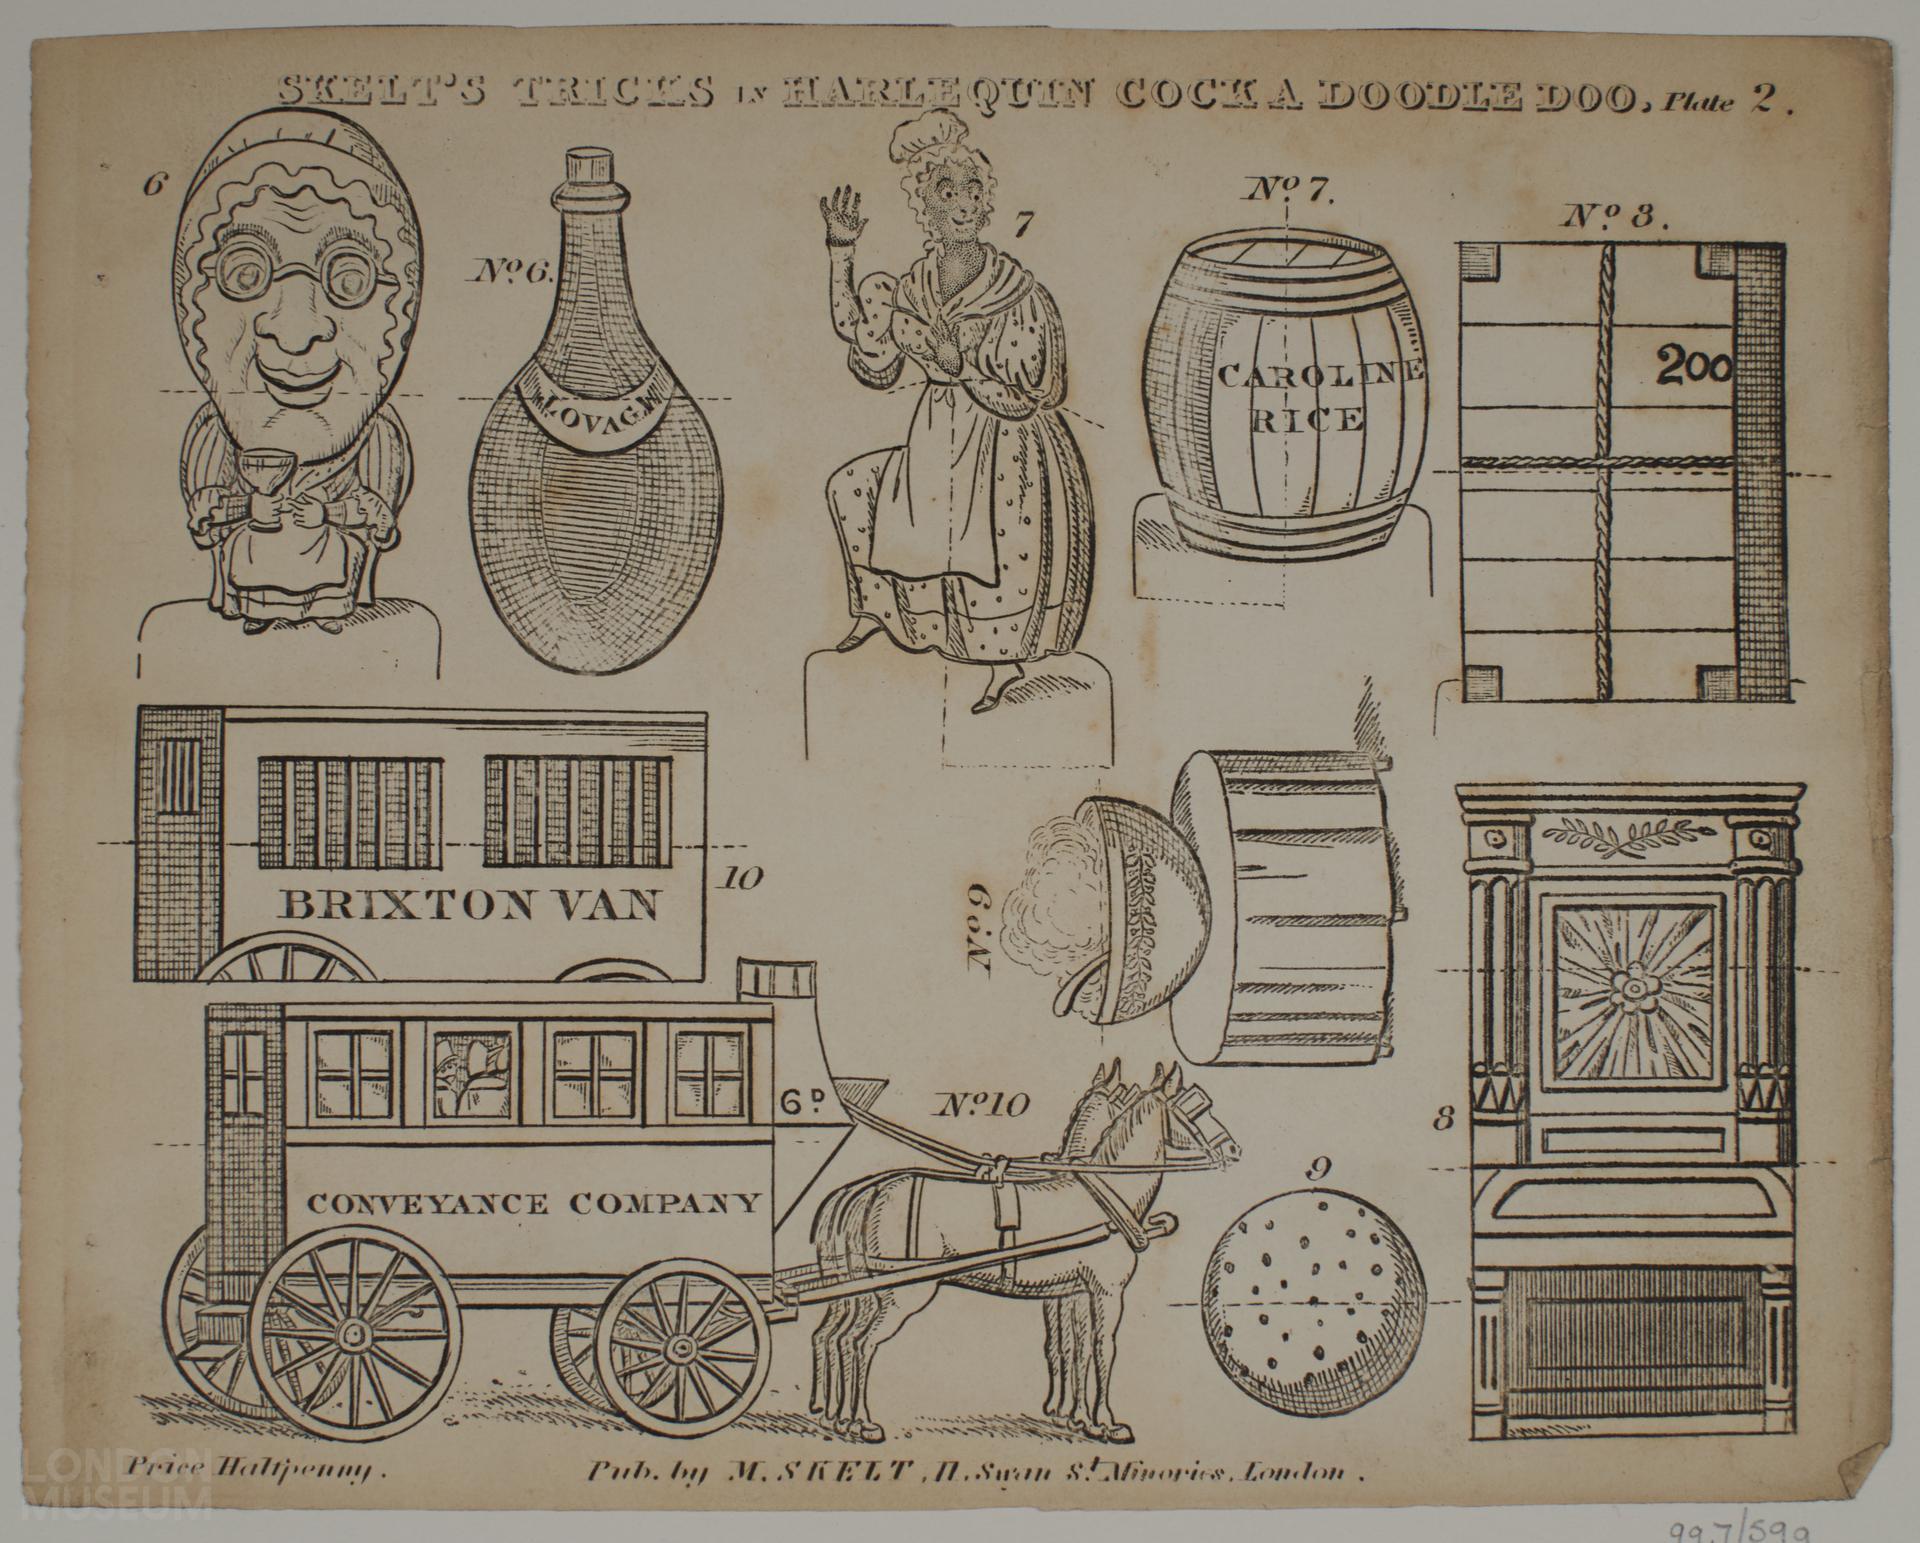 SKELT'S TRICKS IN HARLEQUIN COCK A DOODLE DOO, Plate 2.
6
No. 6.
LOVAGE
7
No. 7.
CAROLINE
RICE
No. 8.
200
BRIXTON VAN
10
No. 9
CONVEYANCE COMPANY
6D
No. 10
9
8
Price Halfpenny.
Pub. by M. SKELT, 11, Swan St. Minories, London.
LONDON
MUSEUM
99.7/599